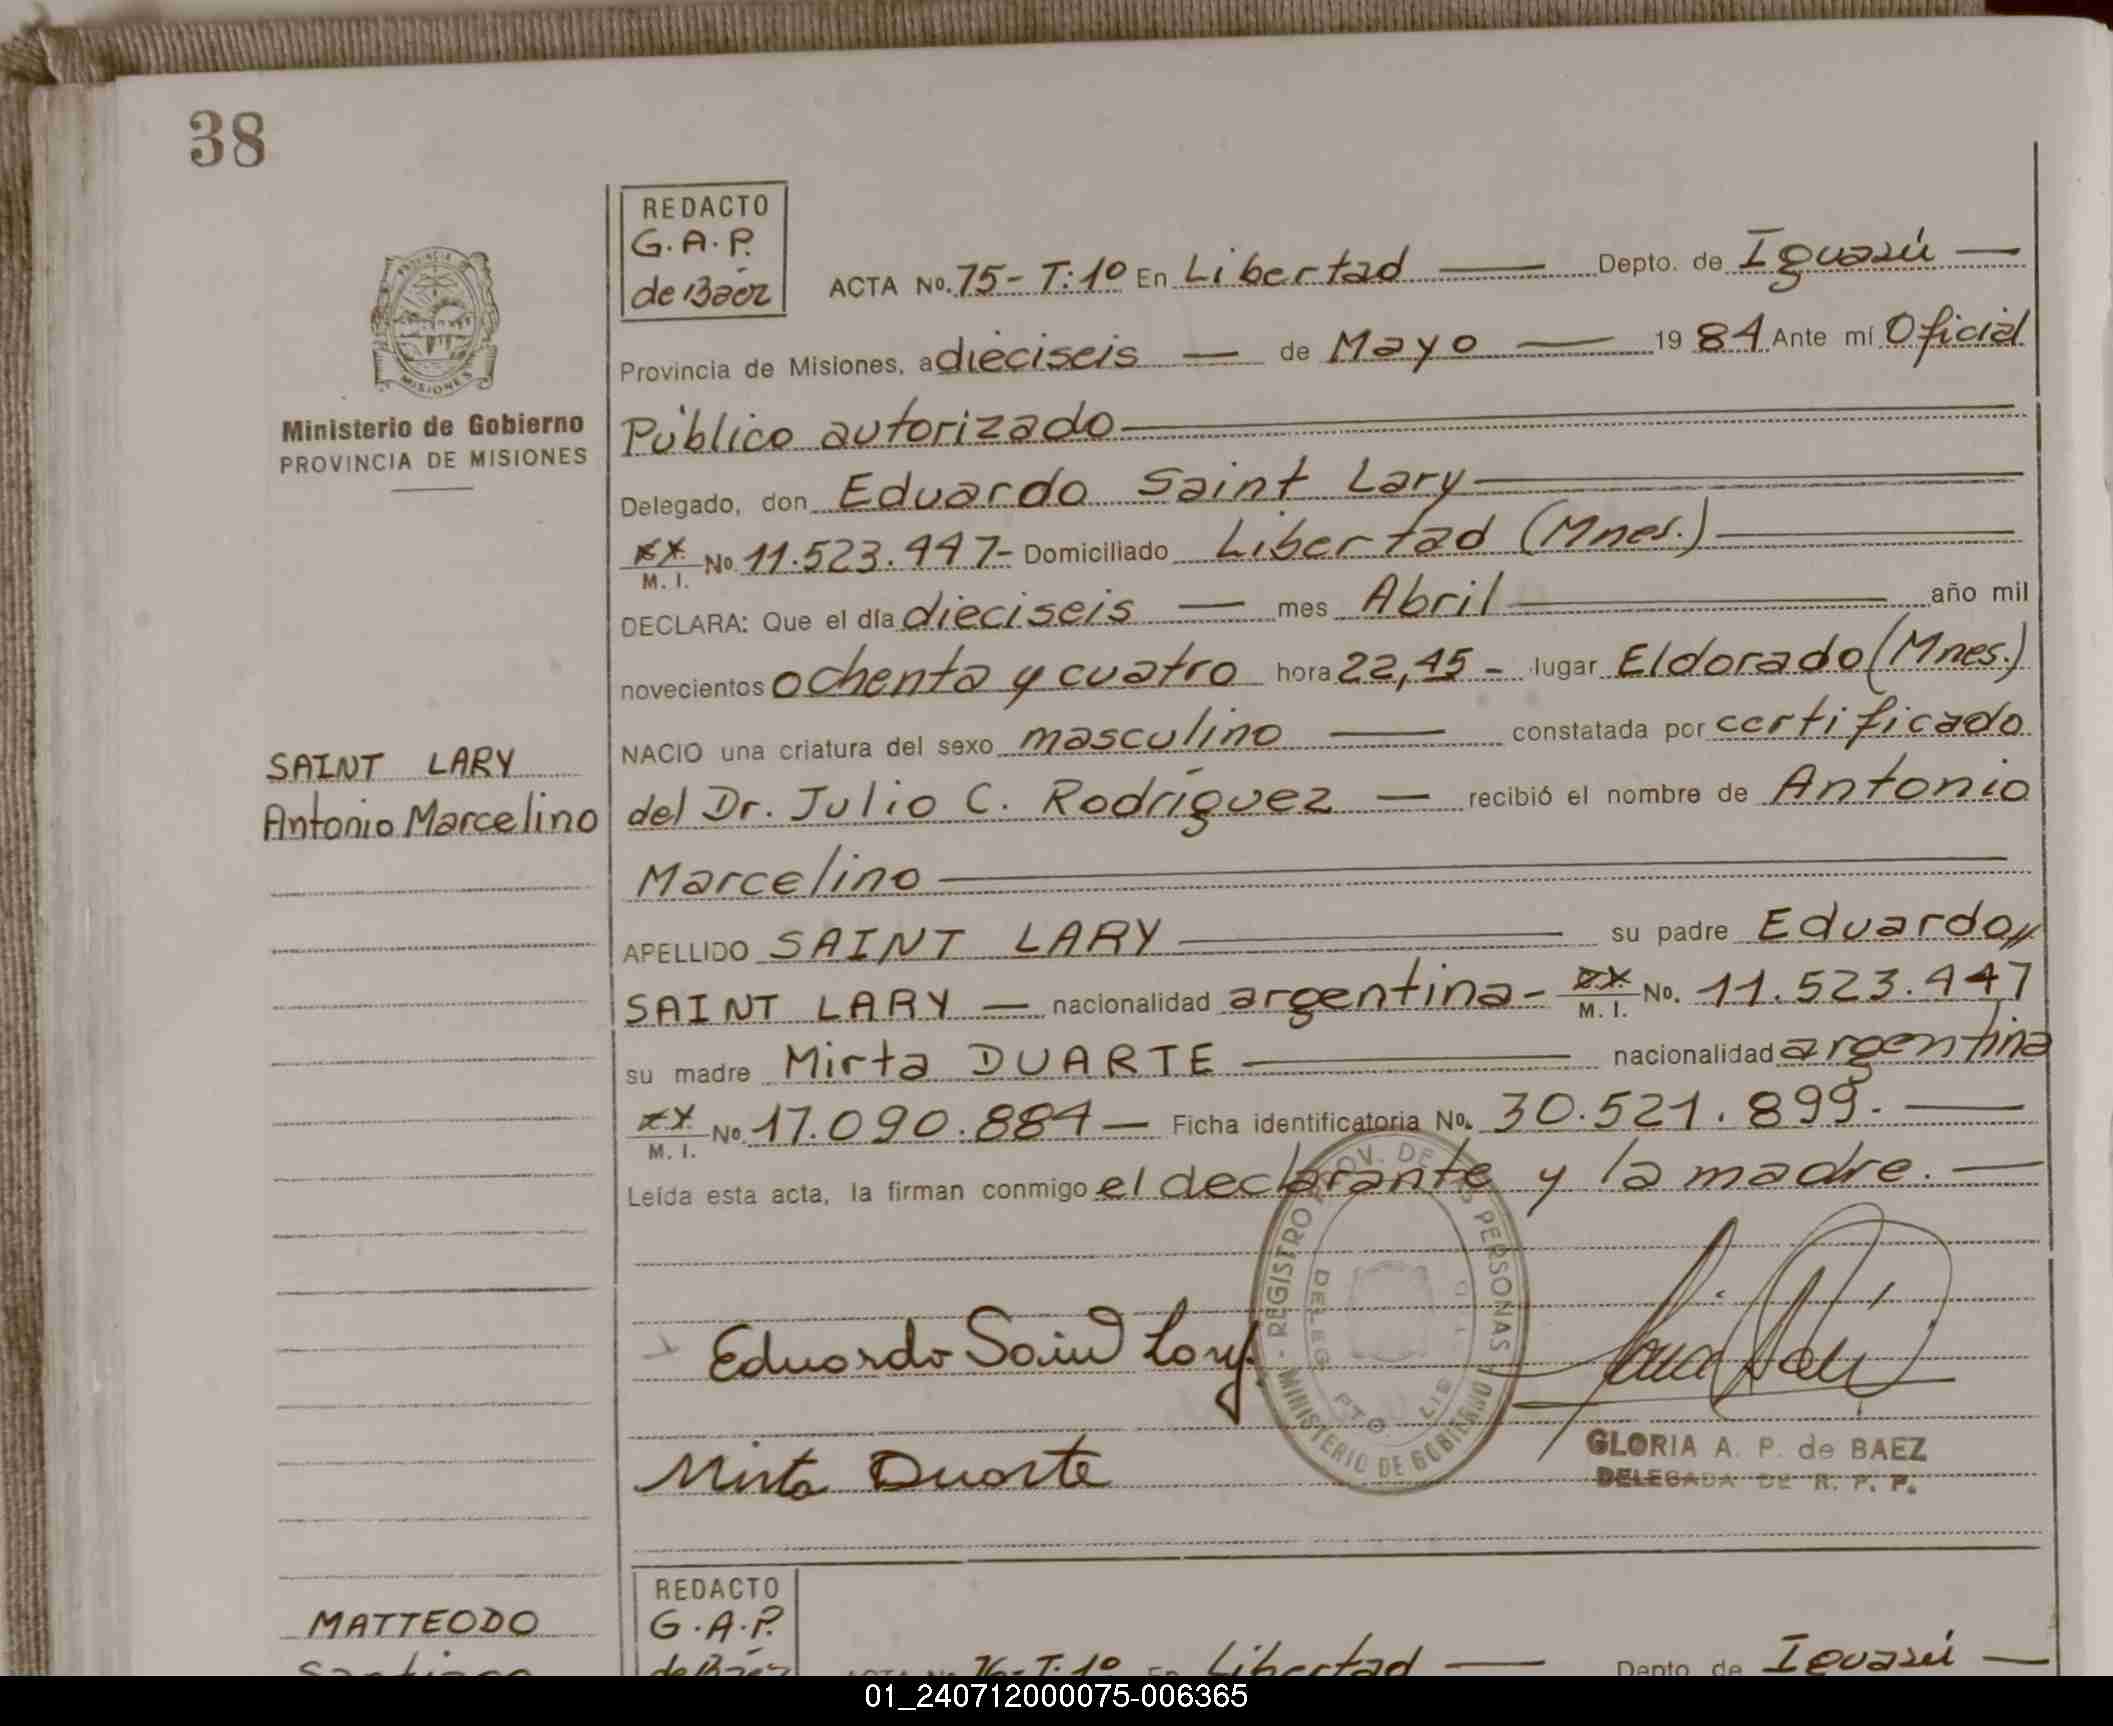 38
PROVINCIA DE
MISIONES
Ministerio de Gobierno
PROVINCIA DE MISIONES
REDACTO
G.A.P.
de Báez
ACTA No. 75- T:1º En Libertad — Depto. de Iguazú —
Provincia de Misiones, a dieciseis — de Mayo — 1984 Ante mí Oficial
Público autorizado —
Delegado, don Eduardo Saint Lary —
M. I. No 11.523.447- Domiciliado Libertad (Mnes.) —
DECLARA: Que el día dieciseis — mes Abril — año mil
novecientos ochenta y cuatro hora 22,45 - lugar Eldorado (Mnes.)
NACIO una criatura del sexo masculino — constatada por certificado
SAINT LARY
Antonio Marcelino
del Dr. Julio C. Rodríguez — recibió el nombre de Antonio
Marcelino —
APELLIDO SAINT LARY — su padre Eduardo//
SAINT LARY — nacionalidad argentina - M. I. No. 11.523.447
su madre Mirta DUARTE — nacionalidad argentina
M. I. No. 17.090.884 — Ficha identificatoria No. 30.521.899. —
Leída esta acta, la firman conmigo el declarante y la madre. —
REGISTRO PROV. DE LAS PERSONAS
MINISTERIO DE GOBIERNO
Eduardo Saint Lary
Mirta Duarte
GLORIA A. P. de BAEZ
DELEGADA DE R. P. P.
REDACTO
G.A.P.
de Báez
MATTEODO
Santiago
ACTA No 76- T:1º En Libertad — Depto. de Iguazú —
01_240712000075-006365